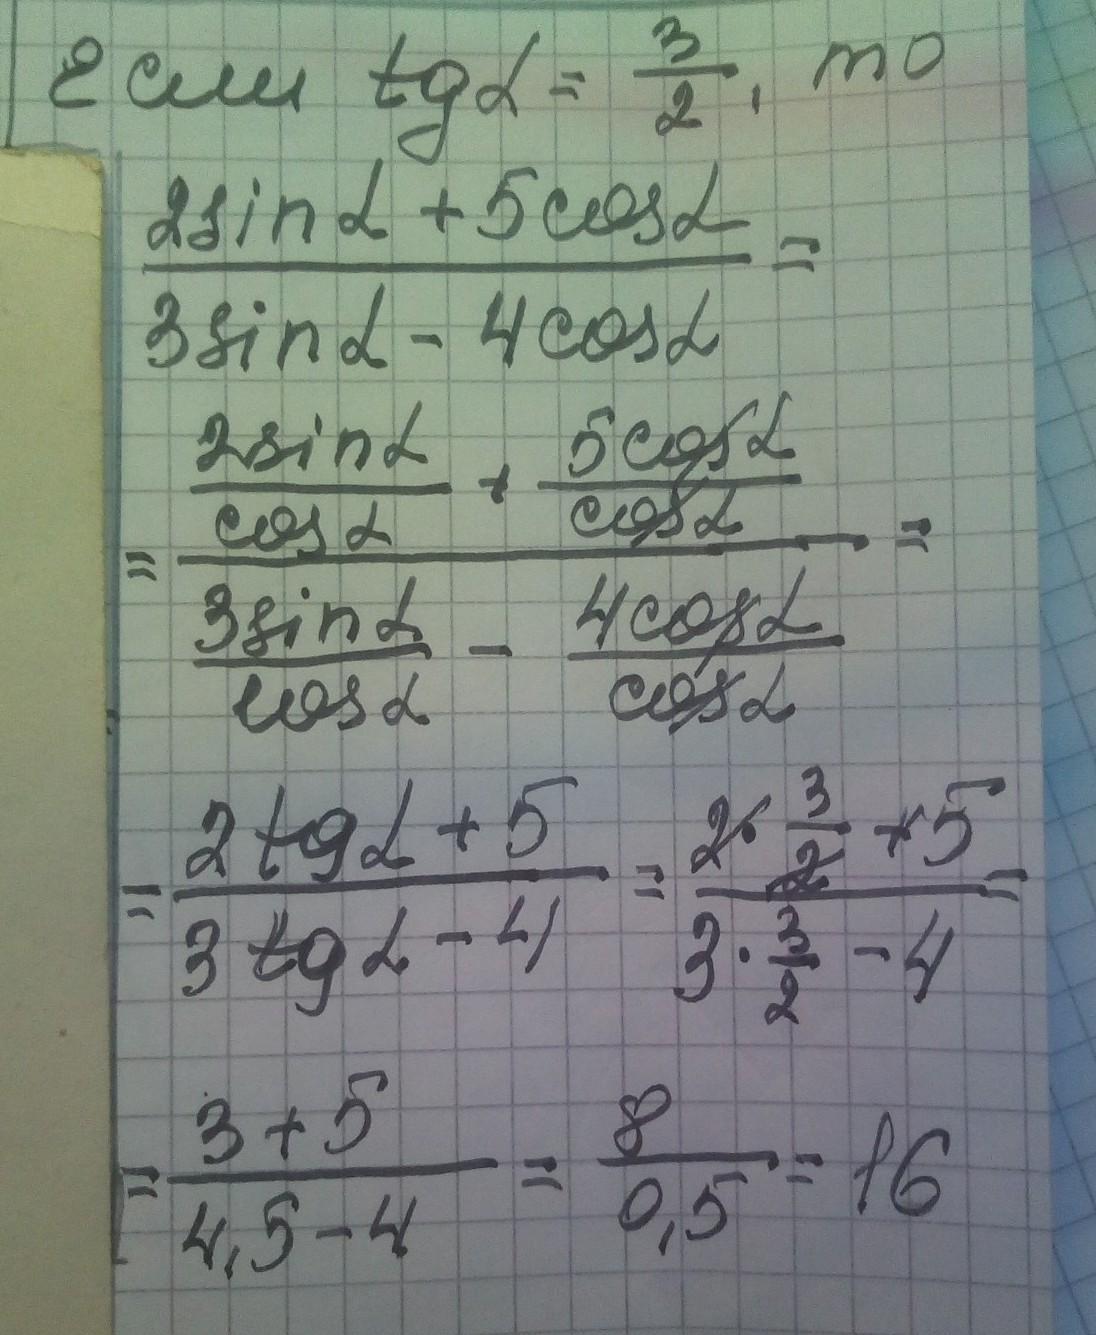 Если tgα = 3/2, то
2sinα + 5cosα
=
3sinα - 4cosα
2sinα/cosα + 5cosα/cosα
= =
3sinα/cosα - 4cosα/cosα
= (2tgα + 5)/(3tgα - 4) = (2·3/2 + 5)/(3·3/2 - 4) =
= (3 + 5)/(4,5 - 4) = 8/0,5 = 16